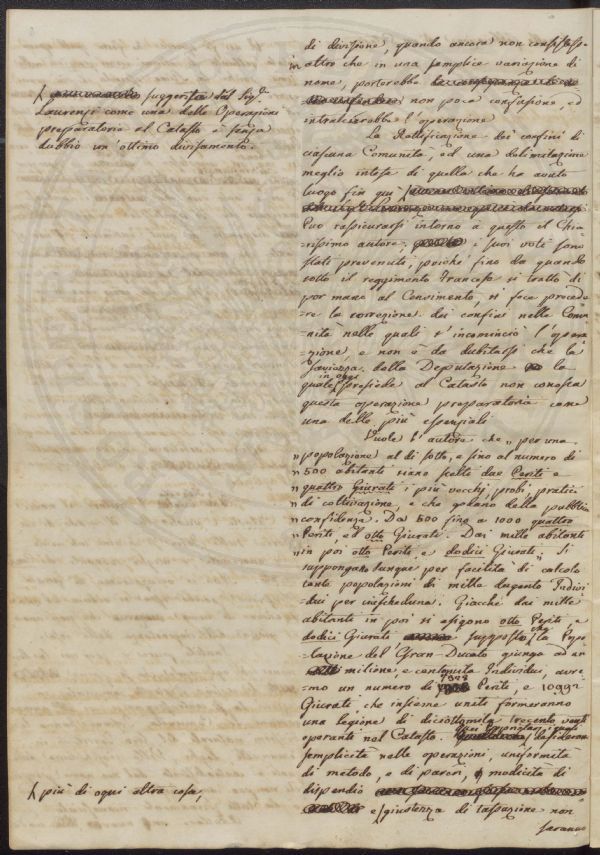 di divisione, quando ancora non consistesse
in altro che in una semplice variazione di
nome, porterebbe non poca confusione, ed
intralcerebbe l'operazione
La Rettificazione dei confini di
ciascuna Comunità, ed una delimitazione
meglio intesa di quella che ha avuto
luogo fin quì
suggerita dal Sig.r
Laurensi come una delle Operazioni
preparatorie al Catasto è senza
dubbio un'ottimo divisamento.
Può rassicurarsi intorno a questo il Chia-
rissimo autore; i suoi voti sono
stati prevenuti, poichè fino da quando
sotto il reggimento Francese si trattò di
por mano al Censimento, si fece procede
=re la correzione dei confini nelle Comu-
=nità nelle quali s'incominciò l'opera
=zione, e non è da dubitarsi che la
saviezza della Deputazione la
quale in oggi presiede al Catasto non conosca
questa operazione preparatoria come
una delle più essenziali
Vuole l'autore che „ per una
„ popolazione al di sotto, e fino al numero di
„ 500 abitanti siano scelti due Periti e
„ quattro Giurati i più vecchj, probi, pratici
„ di coltivazione, e che godano della pubblica
„ confidenza. Dai 500 fino a 1000 quattro
„ Periti, ed otto Giurati. Dai mille abitanti
„ in poi otto Periti, e dodici Giurati „ Si
suppongano dunque per facilità di calcolo
tante popolazioni di mille dugento Indivi
=dui per ciascheduna. Giacchè dai mille
abitanti in poi si esigono otto Periti, e
dodici Giurati supposto che la Popo
=lazione del Gran Ducato giunga ad un
milione, e centomila Individui, avre
=mo un numero di 7328 Periti, e 10992
Giurati, che insieme uniti formeranno
una legione di diciottomila trecento venti
operanti nel Catasto.
semplicità nelle operazioni, uniformità
di metodo, e di pareri, modicità di
dispendio
e più di ogni altra cosa,
giustezza di tassazione non
saranno